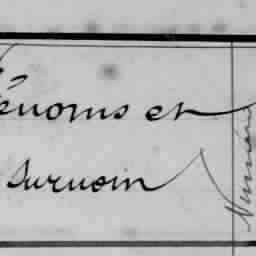 énoms et
surnom
Numéro